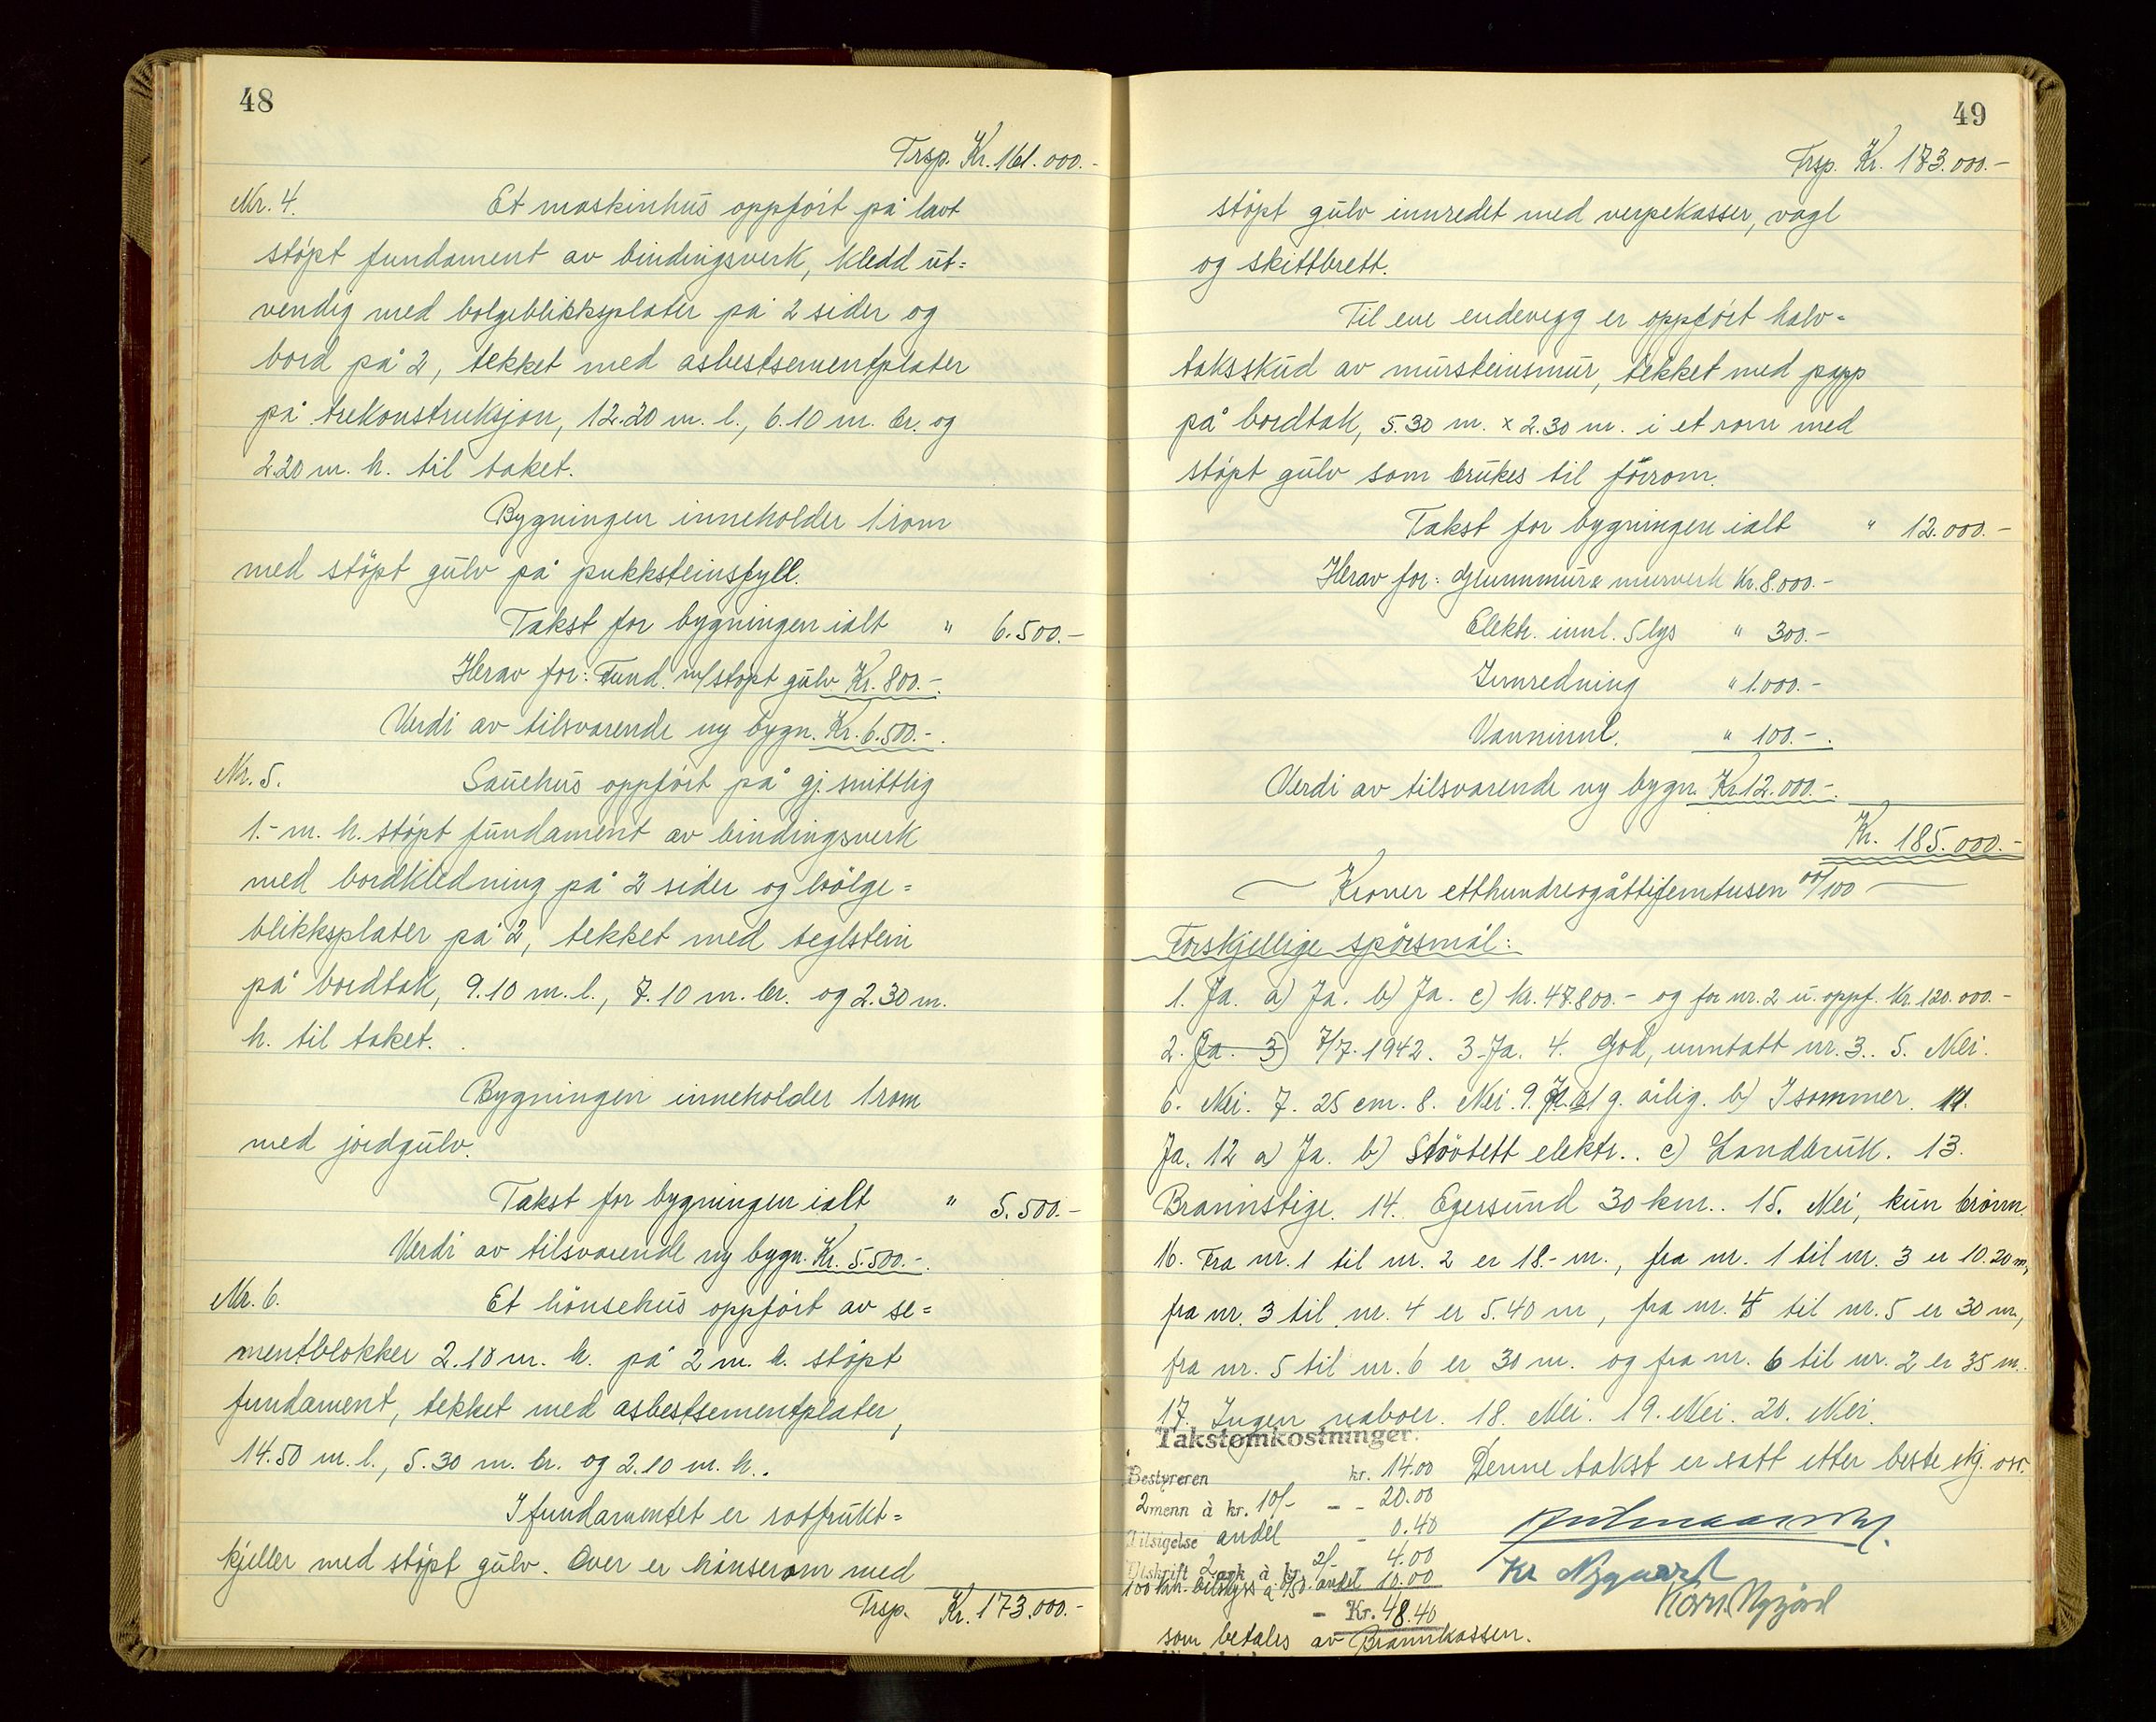 48
Trsp. Kr. 161.000.-
Nr. 4. Et maskinhus oppfört på lavt
stöpt fundament av bindingsverk, kledd ut=
vendig med bolgeblikksplater på 2 sider og
bord på 2, tekket med asbestsementplater
på trekonstruksjon, 12.20 m. l., 6.10 m. br. og
2.20 m. h. til taket.
Bygningen inneholder 1 rom
med stöpt gulv på pukksteinsfyll.
Takst for bygningen ialt " 6.500.-
Herav for: Fund. m/stöpt gulv Kr. 800.-
Verdi av tilsvarende ny bygn. Kr. 6.500.-.
Nr. 5. Sauehus oppfört på gj. snittlig
1.- m. h. stöpt fundament av bindingsverk
med bordkledning på 2 sider og bölge=
blikksplater på 2, tekket med teglstein
på bordtak, 9.10 m. l., 7.10 m. br. og 2.30 m.
h. til taket.
Bygningen inneholder 1 rom
med jordgulv.
Takst for bygningen ialt " 5.500.-
Verdi av tilsvarende ny bygn. Kr. 5.500.-.
Nr. 6. Et hönsehus oppfört av se=
mentblokker 2.10 m. h. på 2 m. h. stöpt
fundament, tekket med asbestsementplater,
14.50 m. l., 5.30 m. br. og 2.10 m. h..
I fundamentet er rotfrukt=
kjeller med stöpt gulv. Over er hönserom med
Trsp. Kr. 173.000.-
49
Trsp. Kr. 173.000.-
stöpt gulv innredet med verpekasser, vagl
og skittbrett.
Til ene endevegg er oppfört halv=
taksskud av mursteinsmur, tekket med papp
på bordtak, 5.30 m. x 2.30 m. i et rom med
stöpt gulv som brukes til förrom.
Takst for bygningen ialt " 12.000.-
Herav for: Grunnmur & murverk Kr. 8.000.-
Elektr. innl. 5 lys " 300.-
Innredning " 1.000.-
Vanninnl. " 100.-.
Verdi av tilsvarende ny bygn. Kr. 12.000.-.
Kr. 185.000.-
Kroner etthundreogåttifemtusen 00/100
Forskjellige spörsmål:
1. Ja. a) Ja. b) Ja. c) kr. 47.800.- og for nr. 2 u. oppf. Kr. 120.000.-
2. Ja. 3) 7/7-1942. 3. Ja. 4. God, unntatt nr. 3. 5. Nei.
6. Nei. 7. 25 cm. 8. Nei. 9. a) 1 g. årlig. b) I sommer. 11.
Ja. 12 a) Ja. b) Stövtett elektr.. c) Landbruk. 13.
Brannstige. 14. Egersund 30 km.. 15. Nei, kun brönn.
16. Fra nr. 1 til nr. 2 er 18.- m., fra nr. 1 til nr. 3 er 10.20 m.,
fra nr. 3 til nr. 4 er 5.40 m, fra nr. 4 til nr. 5 er 30 m.,
fra nr. 5 til nr. 6 er 30 m. og fra nr. 6 til nr. 2 er 35 m.
17. Ingen naboer. 18. Nei. 19. Nei. 20. Nei.
Takstomkostninger:
Bestyreren kr. 14.00 Denne takst er satt etter beste skj. osv.
2 menn à kr. 10/- - - 20.00
Tilsigelse andel - 0.40
Utskrift 2 ark à kr. 2/- - 4.00
100 km. bilskyss à 0/50. andel 10.00
Kr Nygaard
- Kr. 48.40
Nygård
som betales av Brannkassen.